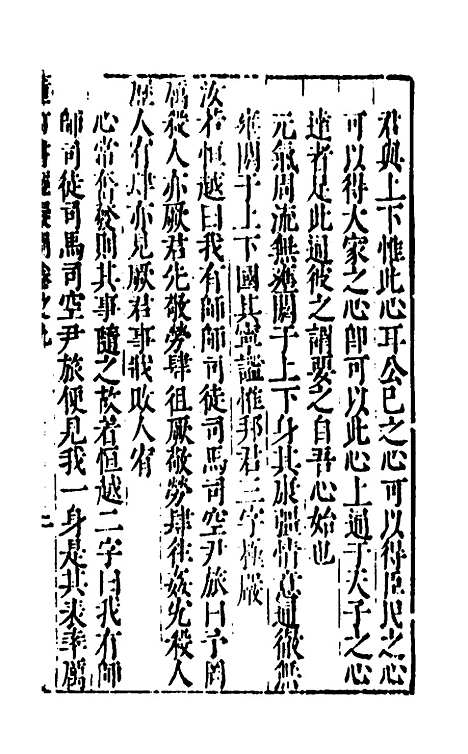 君與上下惟此心耳公已之心可以得臣民之心
可以得大家之心卽可以此心上通于天子之心
達者足此通彼之謂要之自吾心始也
元氣周流無壅閼于上下身其康彊情意通徹無
壅閼于上下國其寧謐惟邦君三字極嚴
汝若恒越曰我有師師司徒司馬司空尹旅曰予罔
厲殺人亦厥君先敬勞肆徂厥敬勞肆往姦宄殺人
歷人宥肆亦見厥君事戕敗人宥
心常奮發則其事隨之故若恒越二字曰我有師
師司徒司馬司空尹旅便見我一身是其表率厲
書經 卷之九